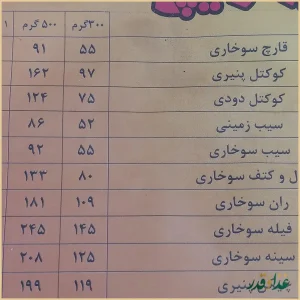 ۳۰۰گرم ۵۰۰ گرم ۱
قارچ سوخاری ۵۵ ۹۱
کوکتل پنیری ۹۷ ۱۶۲
کوکتل دودی ۷۵ ۱۲۴
سیب زمینی ۵۲ ۸۶
سیب سوخاری ۵۵ ۹۲
ل و کتف سوخاری ۸۰ ۱۳۳
ران سوخاری ۱۰۹ ۱۸۱
فیله سوخاری ۱۴۵ ۲۴۵
سینه سوخاری ۱۲۵ ۲۰۸
پنیری ۱۱۹ ۱۹۹